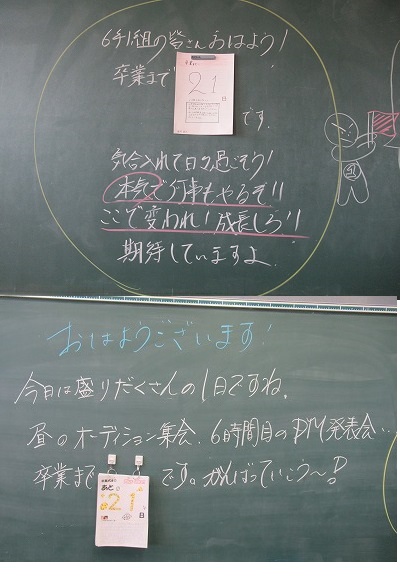 6年1組の皆さんおはよう!
卒業まで
21
日
です.
気合入れて日々過ごそう!
本気で何事もやるぞ!!
ここで変われ!成長しろ!!
期待していますよ.
おはようございます!
今日は盛りだくさんの1日ですね.
昼のオーディション集会、6時間目のPM発表会…
卒業まで
です。がんばっていこう〜!
あと
21
日